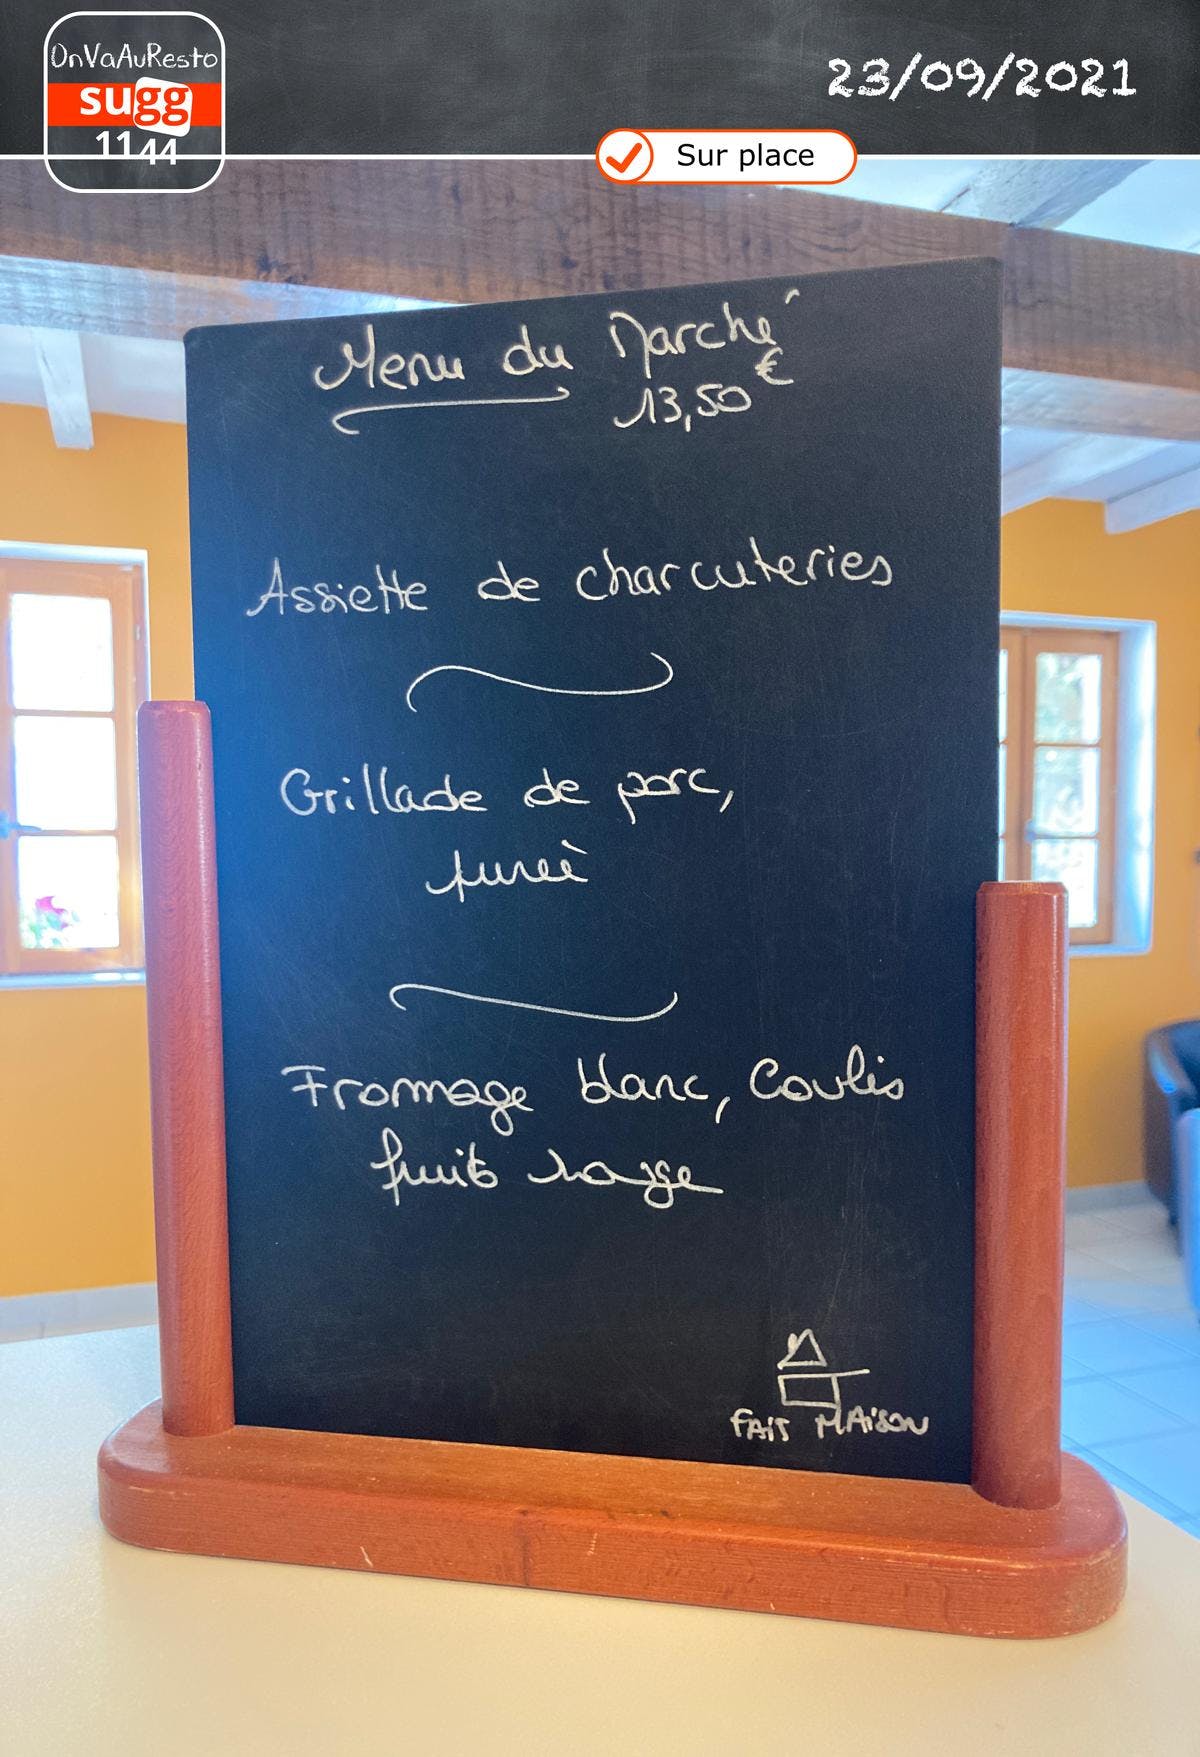 OnVaAuResto
sugg
1144
23/09/2021
Sur place
Menu du Marché
13,50€
Assiette de charcuteries
Grillade de porc,
pureè
Fromage blanc, Coulis
fruits rouge
FAIT MAISON